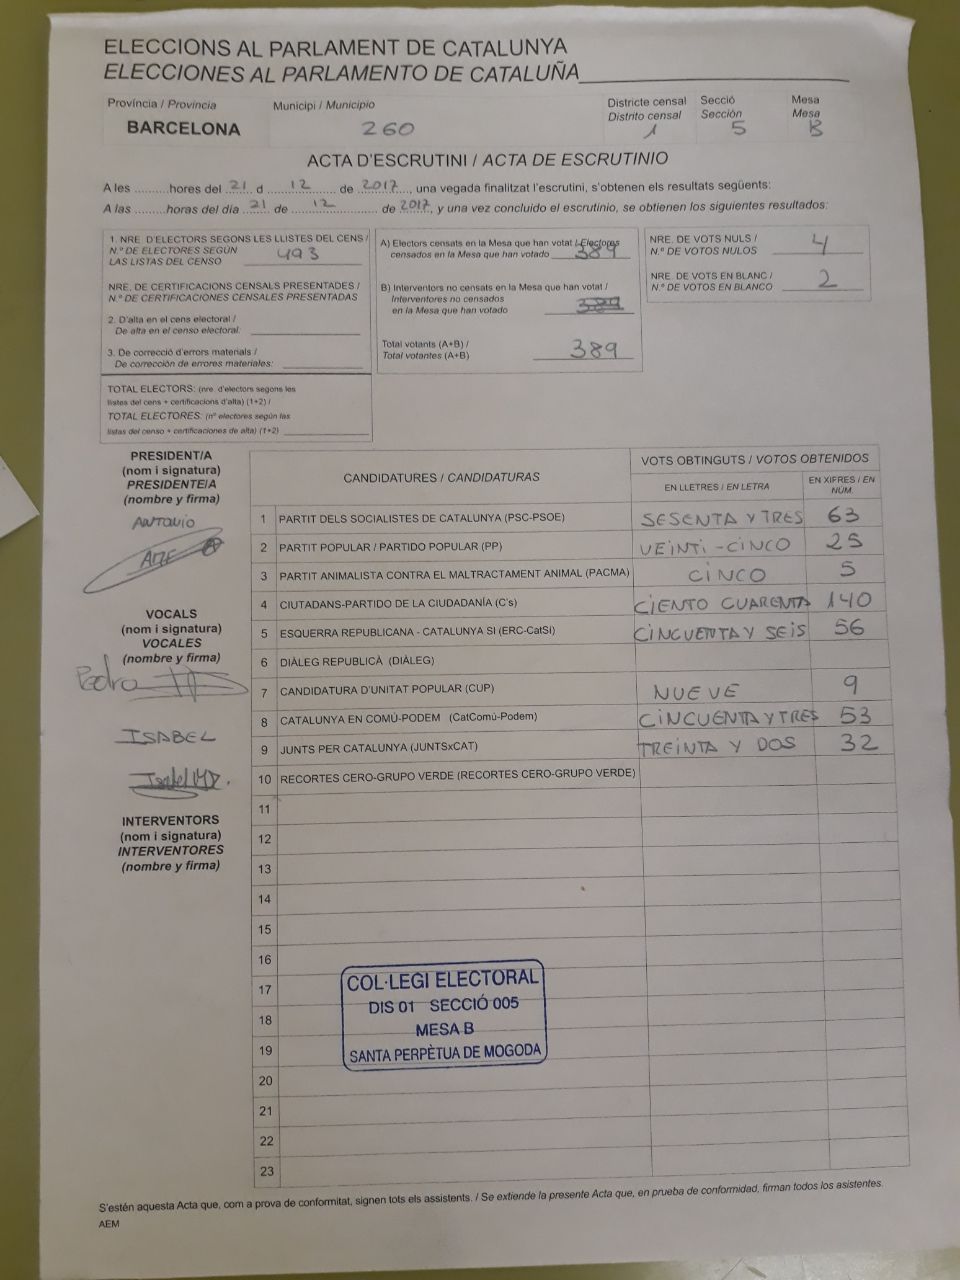 ELECCIONS AL PARLAMENT DE CATALUNYA
ELECCIONES AL PARLAMENTO DE CATALUÑA
Província / Provincia
BARCELONA
Municipi / Municipio
260
Districte censal
Distrito censal
1
Secció
Sección
5
Mesa
Mesa
B
ACTA D'ESCRUTINI / ACTA DE ESCRUTINIO
A les ..........hores del 21 d 12 de 2017, una vegada finalitzat l'escrutini, s'obtenen els resultats següents:
A las ..........horas del día 21 de 12 de 2017, y una vez concluido el escrutinio, se obtienen los siguientes resultados:
1. NRE. D'ELECTORS SEGONS LES LLISTES DEL CENS /
N.º DE ELECTORES SEGÚN
LAS LISTAS DEL CENSO 493
NRE. DE CERTIFICACIONS CENSALS PRESENTADES /
N.º DE CERTIFICACIONES CENSALES PRESENTADAS
2. D'alta en el cens electoral /
De alta en el censo electoral:
3. De correcció d'errors materials /
De corrección de errores materiales:
TOTAL ELECTORS: (nre. d'electors segons les
llistes del cens + certificacions d'alta) (1+2) /
TOTAL ELECTORES: (nº electores según las
listas del censo + certificaciones de alta) (1+2)
A) Electors censats en la Mesa que han votat / Electores
censados en la Mesa que han votado 389
B) Interventors no censats en la Mesa que han votat /
Interventores no censados
en la Mesa que han votado 389
Total votants (A+B) /
Total votantes (A+B) 389
NRE. DE VOTS NULS /
N.º DE VOTOS NULOS 4
NRE. DE VOTS EN BLANC /
N.º DE VOTOS EN BLANCO 2
PRESIDENT/A
(nom i signatura)
PRESIDENTE/A
(nombre y firma)
ANTONIO
VOCALS
(nom i signatura)
VOCALES
(nombre y firma)
Pedro
ISABEL
INTERVENTORS
(nom i signatura)
INTERVENTORES
(nombre y firma)
CANDIDATURES / CANDIDATURAS
VOTS OBTINGUTS / VOTOS OBTENIDOS
EN LLETRES / EN LETRA
EN XIFRES / EN
NÚM.
1 PARTIT DELS SOCIALISTES DE CATALUNYA (PSC-PSOE) SESENTA Y TRES 63
2 PARTIT POPULAR / PARTIDO POPULAR (PP) VEINTI-CINCO 25
3 PARTIT ANIMALISTA CONTRA EL MALTRACTAMENT ANIMAL (PACMA) CINCO 5
4 CIUTADANS-PARTIDO DE LA CIUDADANÍA (C's) CIENTO CUARENTA 140
5 ESQUERRA REPUBLICANA - CATALUNYA SI (ERC-CatSí) CINCUENTA Y SEIS 56
6 DIÀLEG REPUBLICÀ (DIÀLEG)
7 CANDIDATURA D'UNITAT POPULAR (CUP) NUEVE 9
8 CATALUNYA EN COMÚ-PODEM (CatComú-Podem) CINCUENTA Y TRES 53
9 JUNTS PER CATALUNYA (JUNTSxCAT) TREINTA Y DOS 32
10 RECORTES CERO-GRUPO VERDE (RECORTES CERO-GRUPO VERDE)
11
12
13
14
15
16
17
18
19
20
21
22
23
COL·LEGI ELECTORAL
DIS 01 SECCIÓ 005
MESA B
SANTA PERPÈTUA DE MOGODA
S'estén aquesta Acta que, com a prova de conformitat, signen tots els assistents. / Se extiende la presente Acta que, en prueba de conformidad, firman todos los asistentes.
AEM